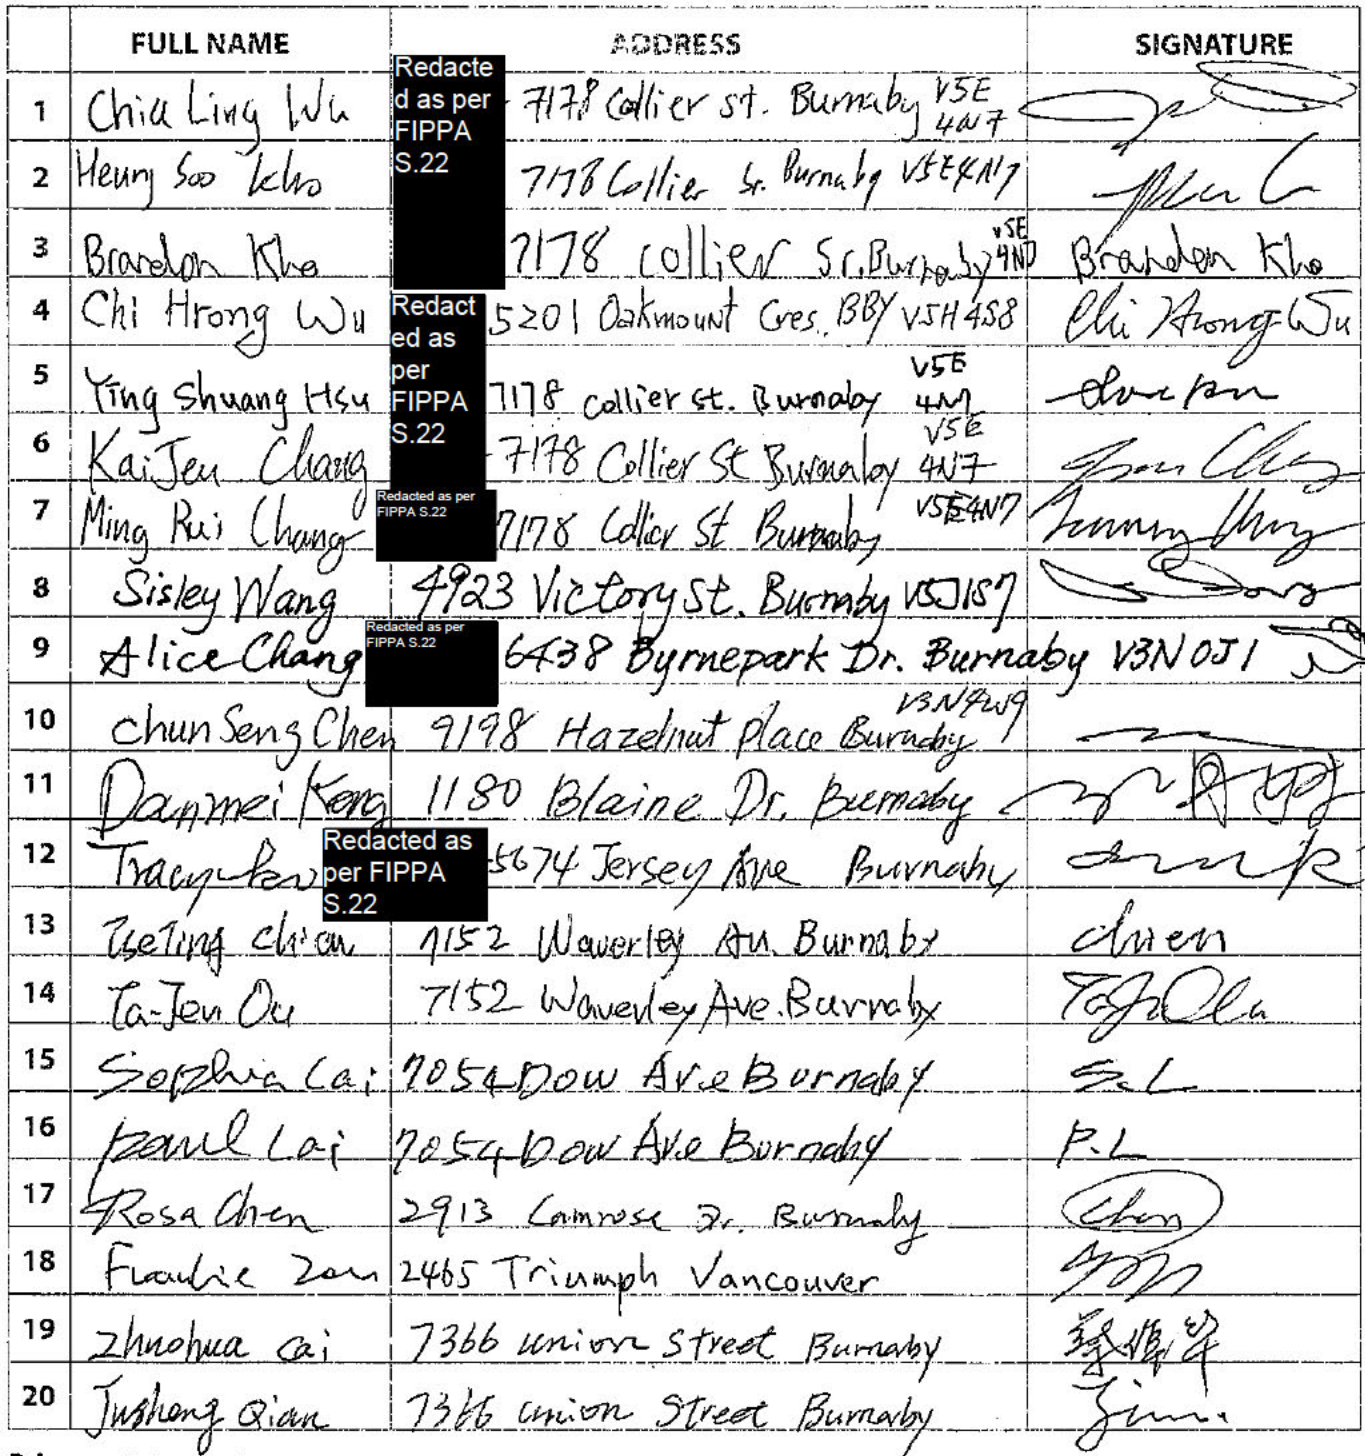 FULL NAME ADDRESS SIGNATURE
1 Chia Ling Wu Redacted as per FIPPA S.22 7178 Collier st. Burnaby V5E 4N7
2 Heung Soo Kho 7178 Collier St. Burnaby V5E4N7
3 Brandon Kho 7178 collier St. Burnaby V5E 4N7 Brandon Kho
4 Chi Hrong Wu Redacted as per FIPPA S.22 5201 Oakmount Cres. BBY V5H 4S8 Chi Hrong Wu
5 Ying Shuang Hsu 7178 Collier st. Burnaby V5E 4N7
6 KaiJen Chang 7178 Collier St Burnaby V5E 4N7
7 Ming Rui Chang Redacted as per FIPPA S.22 7178 Collier St Burnaby V5E4N7
8 Sisley Wang 4923 Victory St. Burnaby V5J1S7
9 Alice Chang Redacted as per FIPPA S.22 6438 Byrnepark Dr. Burnaby V3N 0J1
10 chun Seng Chen 9198 Hazelnut place Burnaby V3N4W9
11 Danmei Kong 1180 Blaine Dr. Burnaby
12 Tracy Redacted as per FIPPA S.22 5674 Jersey Ave Burnaby
13 TseTing chien 7152 Waverley Av. Burnaby chien
14 Ta-Jen Ou 7152 Waverley Ave. Burnaby
15 Sophia Lai 7054 Dow Ave Burnaby S.L
16 paul Lai 7054 Dow Ave Burnaby P.L
17 Rosa Chen 2913 Camrose Dr. Burnaby Chen
18 2465 Triumph Vancouver
19 Zhuohua Cai 7366 union Street Burnaby
20 Jusheng Qian 7366 union Street Burnaby